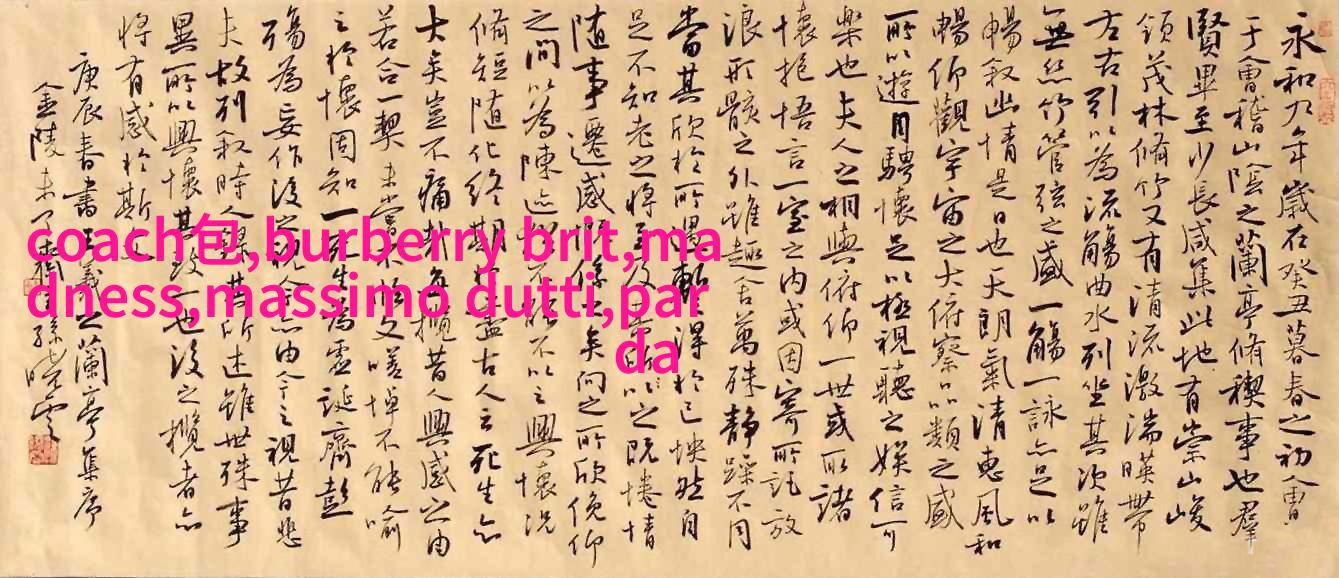 永和九年歲在癸丑暮春之初會
于會稽山陰之蘭亭脩禊事也羣
賢畢至少長咸集此地有崇山峻
領茂林脩竹又有清流激湍暎帶
左右引以為流觴曲水列坐其次雖
無絲竹管弦之盛一觴一詠亦足以
暢叙幽情是日也天朗氣清惠風和
暢仰觀宇宙之大俯察品類之盛
所以遊目騁懷足以極視聽之娛信可
樂也夫人之相與俯仰一世或取諸
懷抱悟言一室之內或因寄所託放
浪形骸之外雖趣舍萬殊靜躁不同
當其欣於所遇暫得於己怏然自
足不知老之將至及其所之既惓情
隨事遷感慨係之矣向之所欣俛仰
之間以為陳迹猶不能不以之興懷況
脩短隨化終期於盡古人云死生亦
大矣豈不痛哉每攬昔人興感之由
若合一契未嘗不臨文嗟悼不能喻
之於懷固知一死生為虛誕齊彭
殤為妄作後之視今亦由今之視昔悲
夫故列叙時人錄其所述雖世殊事
異所以興懷其致一也後之攬者亦
將有感於斯文
庚辰春書王羲之蘭亭集序
金陵孫曉雲
coach包,burberry brit,ma
dness,massimo dutti,par
da